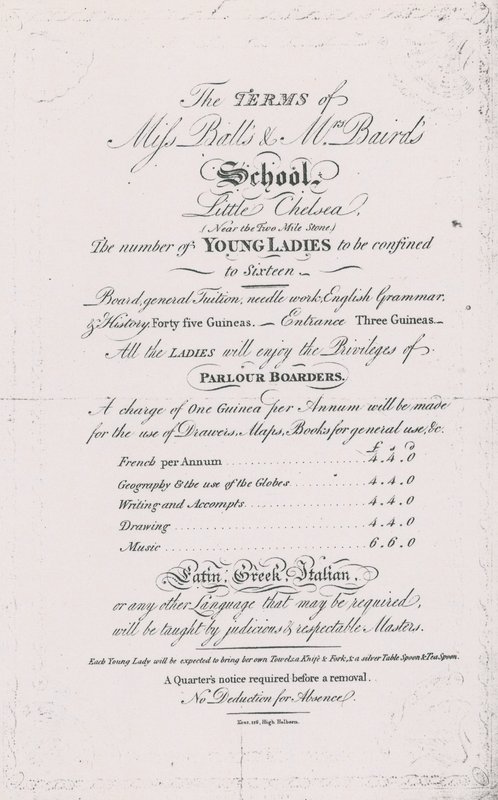 The TERMS of
Miss Ball's & Mrs. Baird's
School.
Little Chelsea,
(Near the Two Mile Stone.)
The number of YOUNG LADIES to be confined
to Sixteen.
Board, general Tuition, needle work, English Grammar,
& History. Forty five Guineas. — Entrance Three Guineas.
All the LADIES will enjoy the Privileges of
PARLOUR BOARDERS.
A charge of One Guinea per Annum will be made
for the use of Drawers, Maps, Books for general use, &c.
£ s d
French per Annum . . . . . 4 . 4 . 0
Geography & the use of the Globes . . . . . 4 . 4 . 0
Writing and Accompts . . . . . 4 . 4 . 0
Drawing . . . . . 4 . 4 . 0
Music . . . . . 6 . 6 . 0
Latin, Greek, Italian,
or any other Language that may be required,
will be taught by judicious & respectable Masters.
Each Young Lady will be expected to bring her own Towels, a Knife & Fork, & a silver Table Spoon & Tea Spoon.
A Quarter's notice required before a removal.
No Deduction for Absence.
High Holborn.